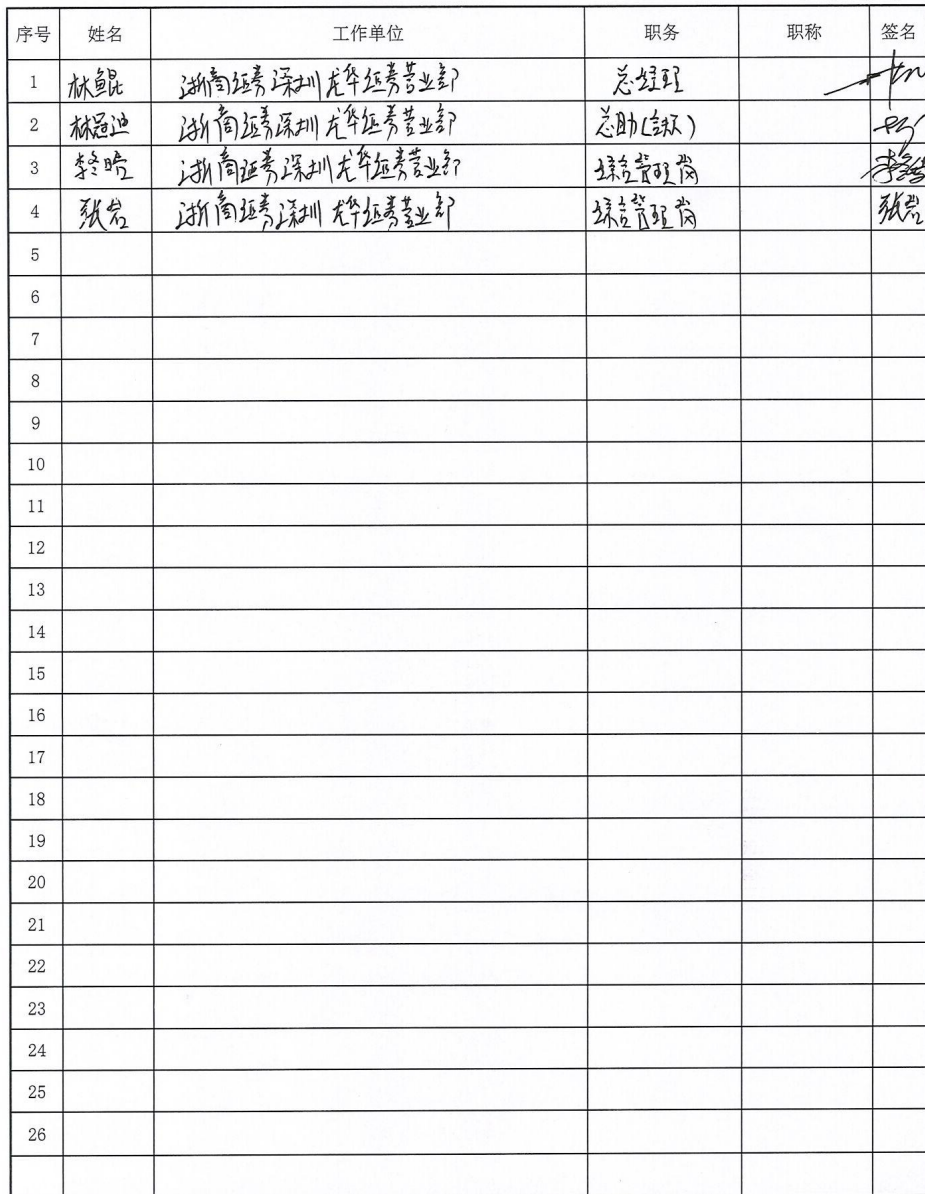 序号 姓名 工作单位 职务 职称 签名
1 林鲲 浙商证券深圳龙华证券营业部 总经理
2 林冠迪 浙商证券深圳龙华证券营业部 总助
3 李冬晗 浙商证券深圳龙华证券营业部 综合管理岗
4 张岩 浙商证券深圳龙华证券营业部 综合管理岗 张岩
5
6
7
8
9
10
11
12
13
14
15
16
17
18
19
20
21
22
23
24
25
26